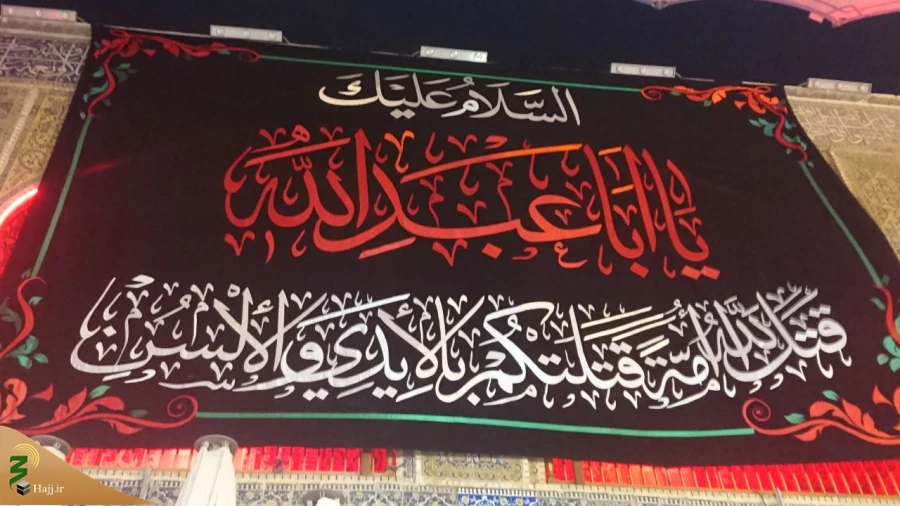 السَّلَامُ عَلَيْكَ
يَا اَبَا عَبْدِ اللّٰهِ
قَتَلَ اللّٰهُ اُمَّةً قَتَلَتْكُمْ بِالْاَيْدِي وَالْاَلْسُنِ
Hajj.ir